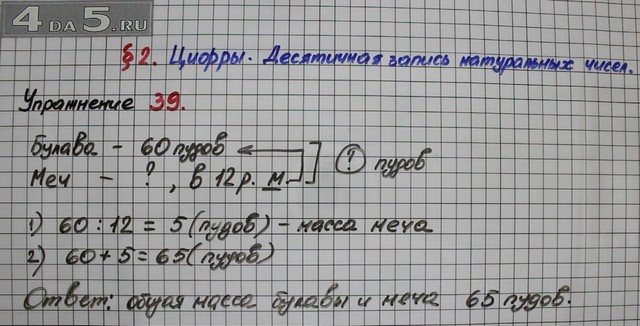 4DA5.RU
§2. Цифры. Десятичная запись натуральных чисел.
Упражнение 39.
Булава - 60 пудов
Меч - ?, в 12 р. м. ? пудов
1) 60 : 12 = 5 (пудов) - масса меча
2) 60 + 5 = 65 (пудов)
Ответ: общая масса булавы и меча 65 пудов.